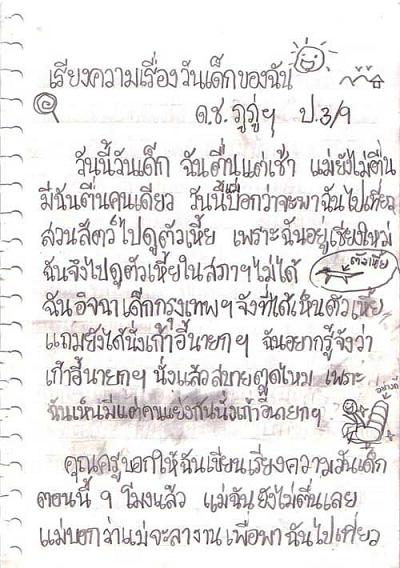 เรียงความเรื่องวันเด็กของฉัน
ด.ช. ภูภู่ฯ ป.3/9
วันนี้วันเด็ก ฉันตื่นแต่เช้า แม่ยังไม่ตื่น
มีฉันตื่นคนเดียว วันนี้ป๊อกว่าจะพาฉันไปเที่ยว
สวนสัตว์ไปดูตัวเหี้ย เพราะฉันอยู่เชียงใหม่
ฉันจึงไปดูตัวเหี้ยในสภาฯไม่ได้
ตัวเหี้ย
ฉันอิจฉาเด็กกรุงเทพฯจังที่ได้เห็นตัวเหี้ย
แถมยังได้นั่งเก้าอี้นายกฯ ฉันอยากรู้จังว่า
เก้าอี้นายกฯ นั่งแล้วสบายตูดไหม เพราะ
ฉันเห็นมีแต่คนแย่งกันนั่งเก้าอี้นายกฯ
คุณครูบอกให้ฉันเขียนเรียงความวันเด็ก
ตอนนี้ 9 โมงแล้ว แม่ฉันยังไม่ตื่นเลย
แม่บอกว่าแม่จะลางานเพื่อพาฉันไปเที่ยว